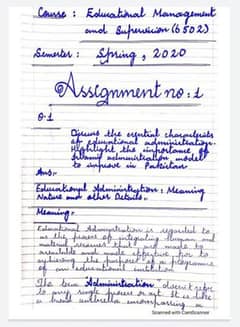 Course : Educational Management
and Supervision (6502)
Semester : Spring, 2020
Assignment no : 1
Q.1
Discuss the essential characteristics
of educational administration.
Highlight the importance of
Islamic administration model
to improve in Pakistan
Ans.
Educational Administration : Meaning
Nature and other Details.
Meaning :
Educational Administration is regarded to
as the process of integrating human and
material resources that are made to
available and made effective for to
achieving the purposes of a programme
of an educational institution
The term "Administration" doesn't refer
to any single process or act. It is like
a broad umbrella encompassing a
Scanned with CamScanner